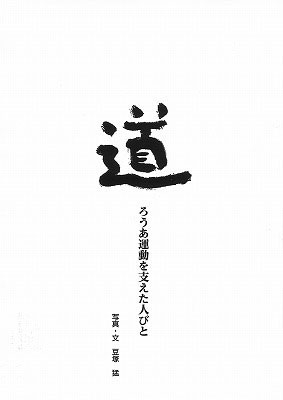 道
ろうあ運動を支えた人びと
写真・文 豆塚 猛